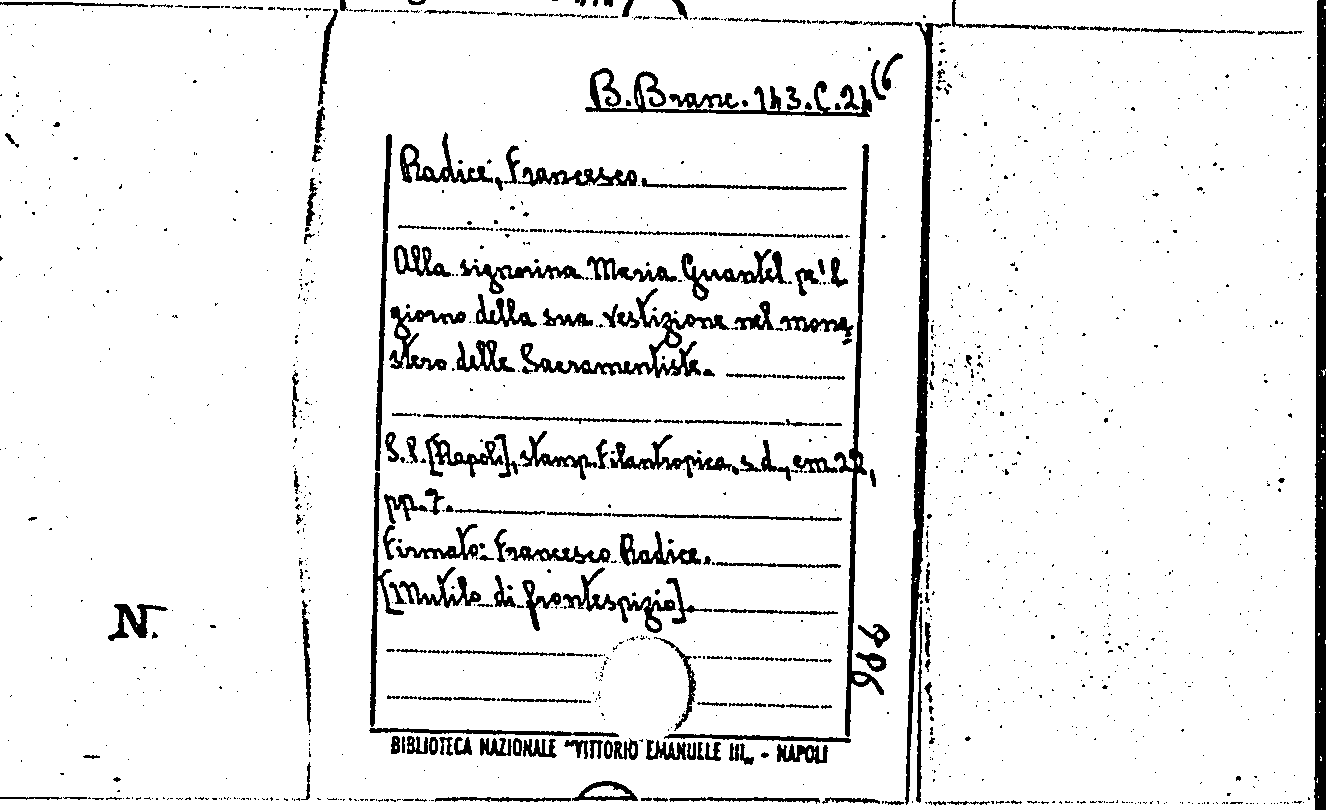 B. Branc. 143. C. 24 (6
Radice, Francesco.
Alla signorina Maria Guantel pe'l
giorno della sua vestizione nel mona
stero delle Sacramentiste.
S. l. [Napoli], stamp. Filantropica, s. d., cm. 22,
pp. 7.
Firmato: Francesco Radice.
[Mutilo di frontespizio].
N.
986
BIBLIOTECA NAZIONALE "VITTORIO EMANUELE III„ - NAPOLI